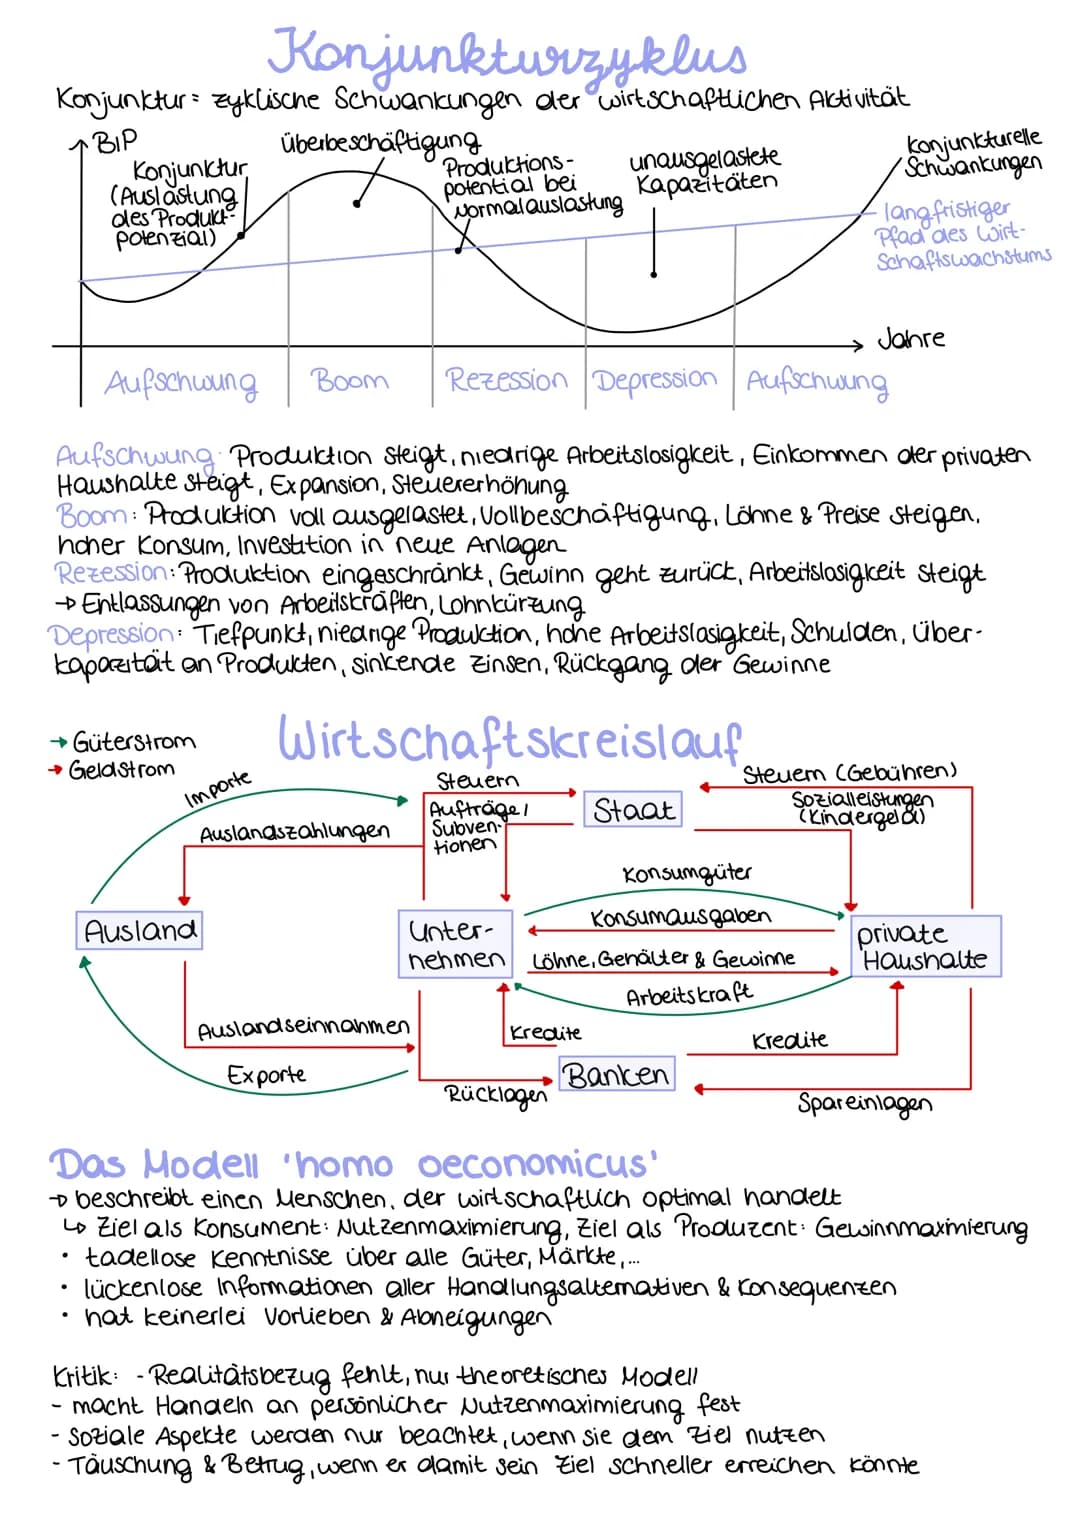 Konjunkturzyklus
Konjunktur = zyklische Schwankungen der wirtschaftlichen Aktivität
BIP
Konjunktur
(Auslastung
des Produkt-
potenzial)
Überbeschäftigung
Produktions-
potential bei
Normalauslastung
unausgelastete
Kapazitäten
konjunkturelle
Schwankungen
langfristiger
Pfad des Wirt-
schaftswachstums
Jahre
Aufschwung
Boom
Rezession
Depression
Aufschwung
Aufschwung: Produktion steigt, niedrige Arbeitslosigkeit, Einkommen der privaten
Haushalte steigt, Expansion, Steuererhöhung
Boom: Produktion voll ausgelastet, Vollbeschäftigung, Löhne & Preise steigen,
hoher Konsum, Investition in neue Anlagen
Rezession: Produktion eingeschränkt, Gewinn geht zurück, Arbeitslosigkeit steigt
→ Entlassungen von Arbeitskräften, Lohnkürzung
Depression: Tiefpunkt, niedrige Produktion, hohe Arbeitslosigkeit, Schulden, Über-
kapazität an Produkten, sinkende Zinsen, Rückgang der Gewinne
Wirtschaftskreislauf
→ Güterstrom
→ Geldstrom
Importe
Auslandszahlungen
Steuern
Aufträge/
Subven-
tionen
Staat
Steuern (Gebühren)
Sozialleistungen
(Kindergeld)
Konsumgüter
Konsumausgaben
Ausland
Unter-
nehmen
private
Haushalte
Löhne, Gehälter & Gewinne
Arbeitskraft
Auslandseinnahmen
Kredite
Kredite
Exporte
Rücklagen
Banken
Spareinlagen
Das Modell 'homo oeconomicus'
→ beschreibt einen Menschen, der wirtschaftlich optimal handelt
↳ Ziel als Konsument: Nutzenmaximierung, Ziel als Produzent: Gewinnmaximierung
• tadellose Kenntnisse über alle Güter, Märkte,...
• lückenlose Informationen aller Handlungsalternativen & Konsequenzen
• hat keinerlei Vorlieben & Abneigungen
Kritik: - Realitätsbezug fehlt, nur theoretisches Modell
- macht Handeln an persönlicher Nutzenmaximierung fest
- Soziale Aspekte werden nur beachtet, wenn sie dem Ziel nutzen
- Täuschung & Betrug, wenn er damit sein Ziel schneller erreichen könnte